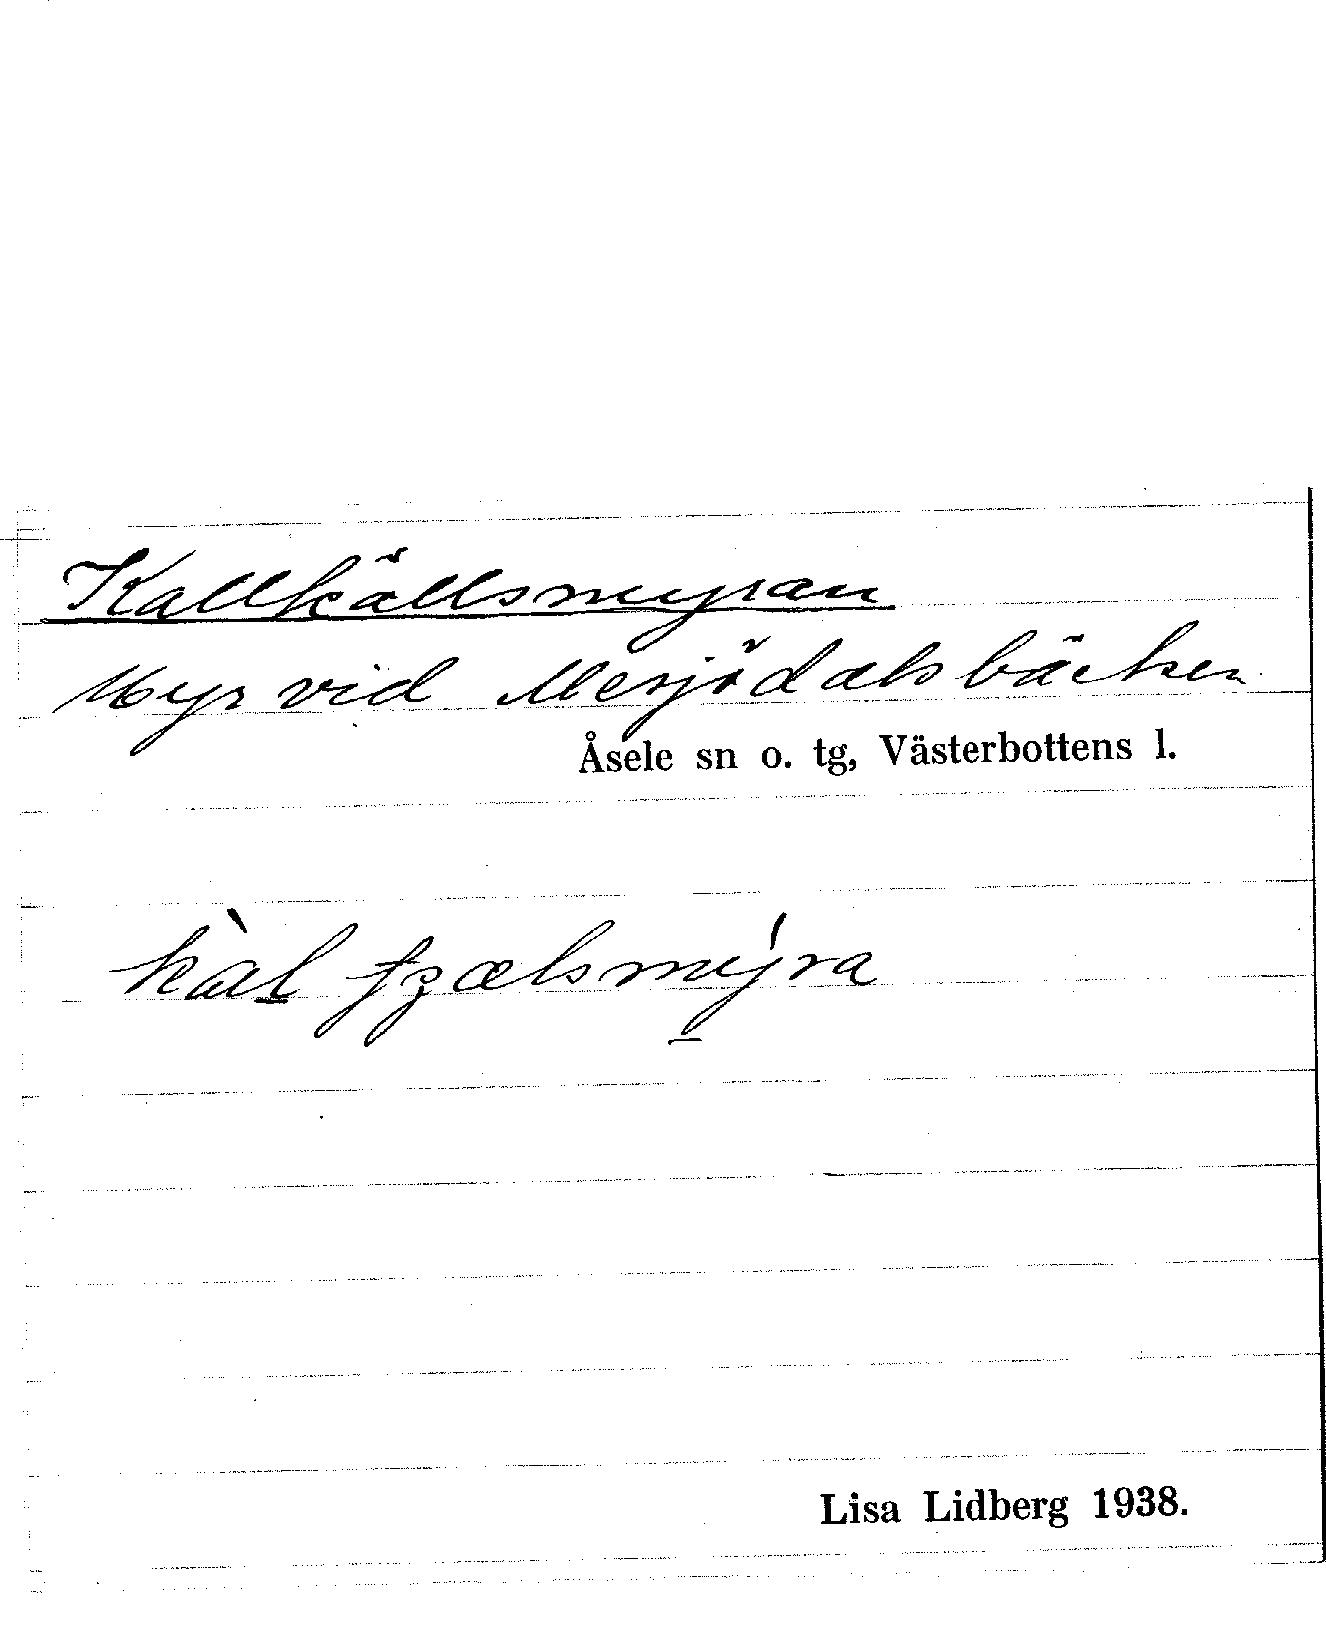 Kallkällsmyran
Myr vid Mesjödalsbäcken
Åsele sn o. tg, Västerbottens l.
kàl fʒælsmýra
Lisa Lidberg 1938.